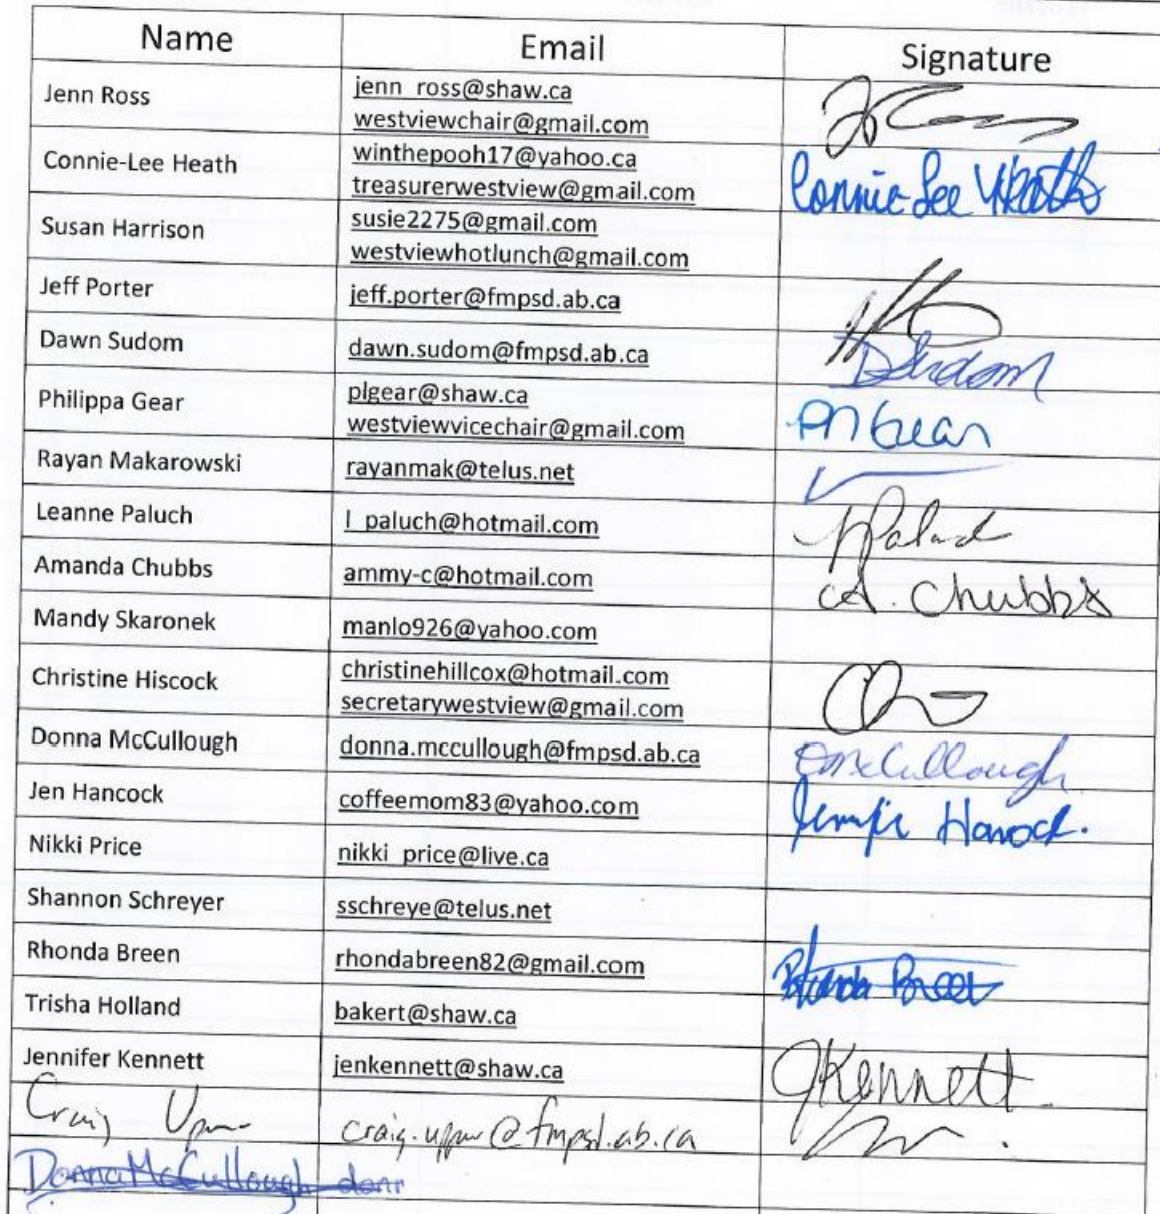 Name Email Signature
Jenn Ross jenn_ross@shaw.ca
westviewchair@gmail.com
Connie-Lee Heath winthepooh17@yahoo.ca Connie-Lee Heath
treasurerwestview@gmail.com
Susan Harrison susie2275@gmail.com
westviewhotlunch@gmail.com
Jeff Porter jeff.porter@fmpsd.ab.ca
Dawn Sudom dawn.sudom@fmpsd.ab.ca DSudom
Philippa Gear plgear@shaw.ca Gear
westviewvicechair@gmail.com
Rayan Makarowski rayanmak@telus.net
Leanne Paluch l_paluch@hotmail.com
Amanda Chubbs ammy-c@hotmail.com A. Chubbs
Mandy Skaronek manlo926@yahoo.com
Christine Hiscock christinehillcox@hotmail.com
secretarywestview@gmail.com
Donna McCullough donna.mccullough@fmpsd.ab.ca DMcCullough
Jen Hancock coffeemom83@yahoo.com
Nikki Price nikki_price@live.ca
Shannon Schreyer sschreye@telus.net
Rhonda Breen rhondabreen82@gmail.com Rhonda Breen
Trisha Holland bakert@shaw.ca
Jennifer Kennett jenkennett@shaw.ca JKennett
Craig
Donna McCullough donn